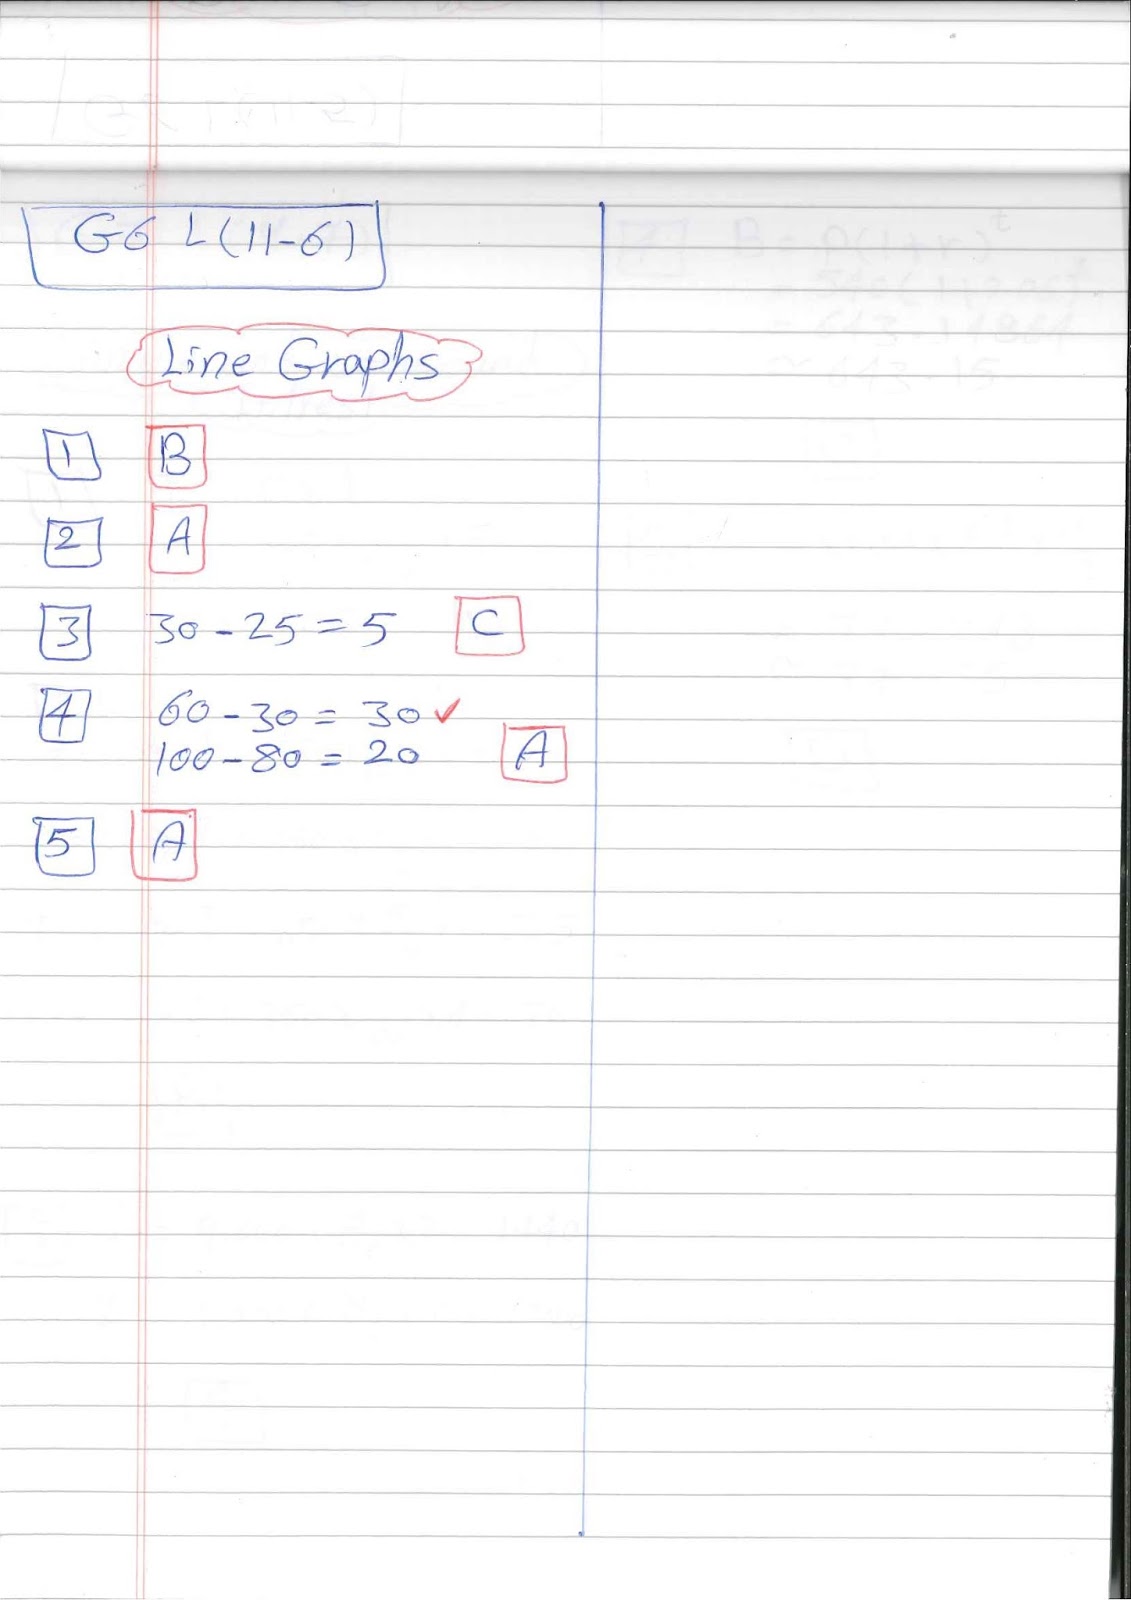 G6 L(11-6)
Line Graphs
1 B
2 A
3 30 - 25 = 5 C
4 60 - 30 = 30 ✓
100 - 80 = 20 A
5 A